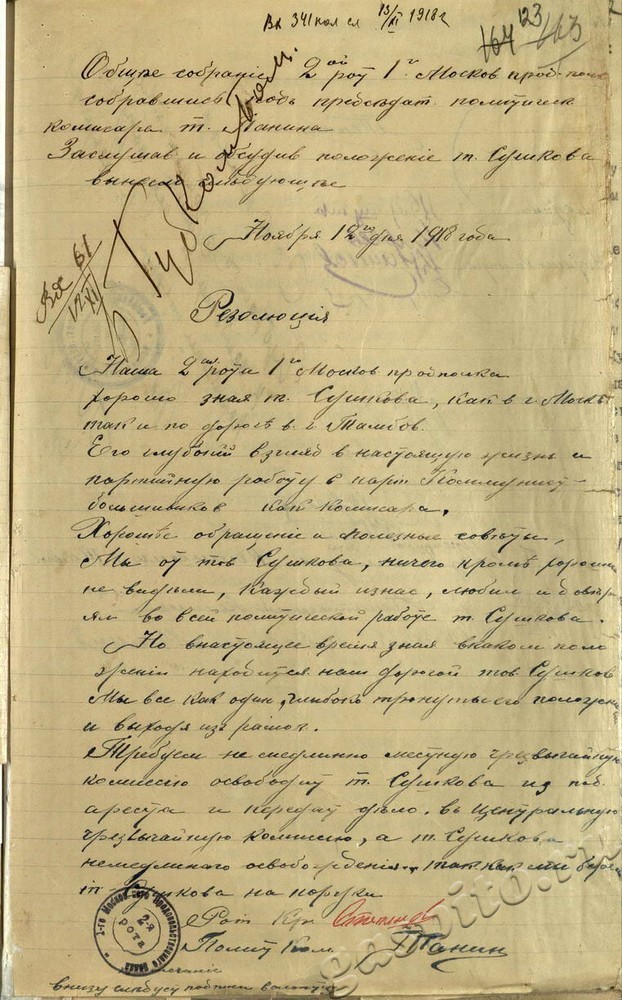 Вх 341 кол сл 13/XI 1918 г
164 123 163
Общее собрание 2ой рот 1го Москов прод-полк
собравшись подъ председат. политическ
комисара т. Панина
Заслушав и обсудив положрение т. Сушкова
вынесло следующее
Губкомъ
Вх 61
Ноября 12го дня 1918 года
Резолюція
Наша 2ая рота 1го Москов продполка
хорошо зная т. Сушкова, как в г. Москве
так и по дороге в. г. Тамбов.
Его глубокий взгляд в настоящую жизнь и
партийную работу в парт Коммунист-
большивиков как комисара.
Хорошее обращение и полезные советы,
Мы от тов Сушкова, ничего кроме хорошаго
не видели, Каждый изнас, любил и довер
ял во всей политической работе т. Сушкова.
Но внастоящее время зная вкаком поло
жении находится наш дорогой тов Сушков
Мы все как один, глыбоко тронуты его положени
и выходя из рамок.
Требуем не медленно местную чрезвычайную
комиссию освободит т. Сушкова из под
ареста и передат дело. въ Центральную
чрезвычайную комиссию, а т. Сушкова
немедлинаго освобождения, так как мы берем
т- Сушкова на поруки
Рот Кр Степанов
Полит Ком. Панин
1-го Москов-ского Продовольственного полка
2-я рота
внизу следует подписи
gaspito.ru